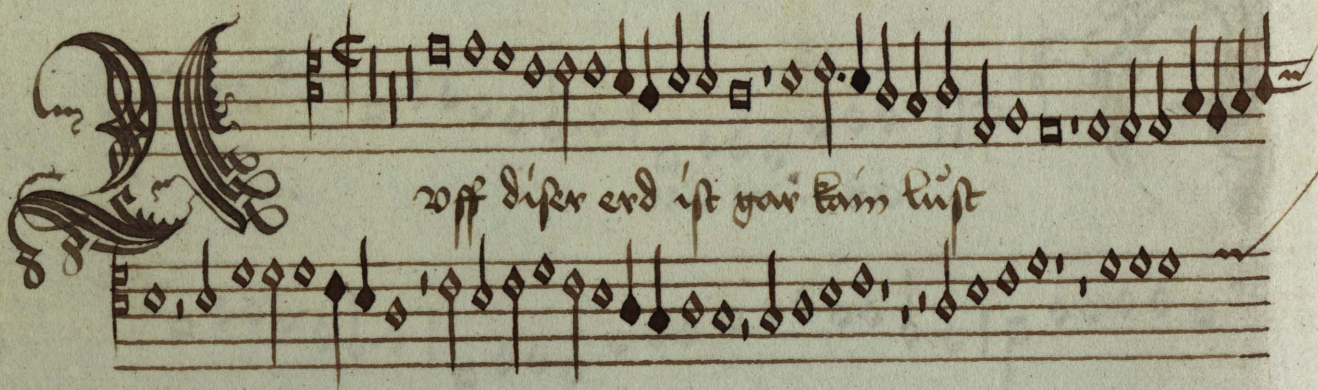 Auff diser erd ist gar kain lust